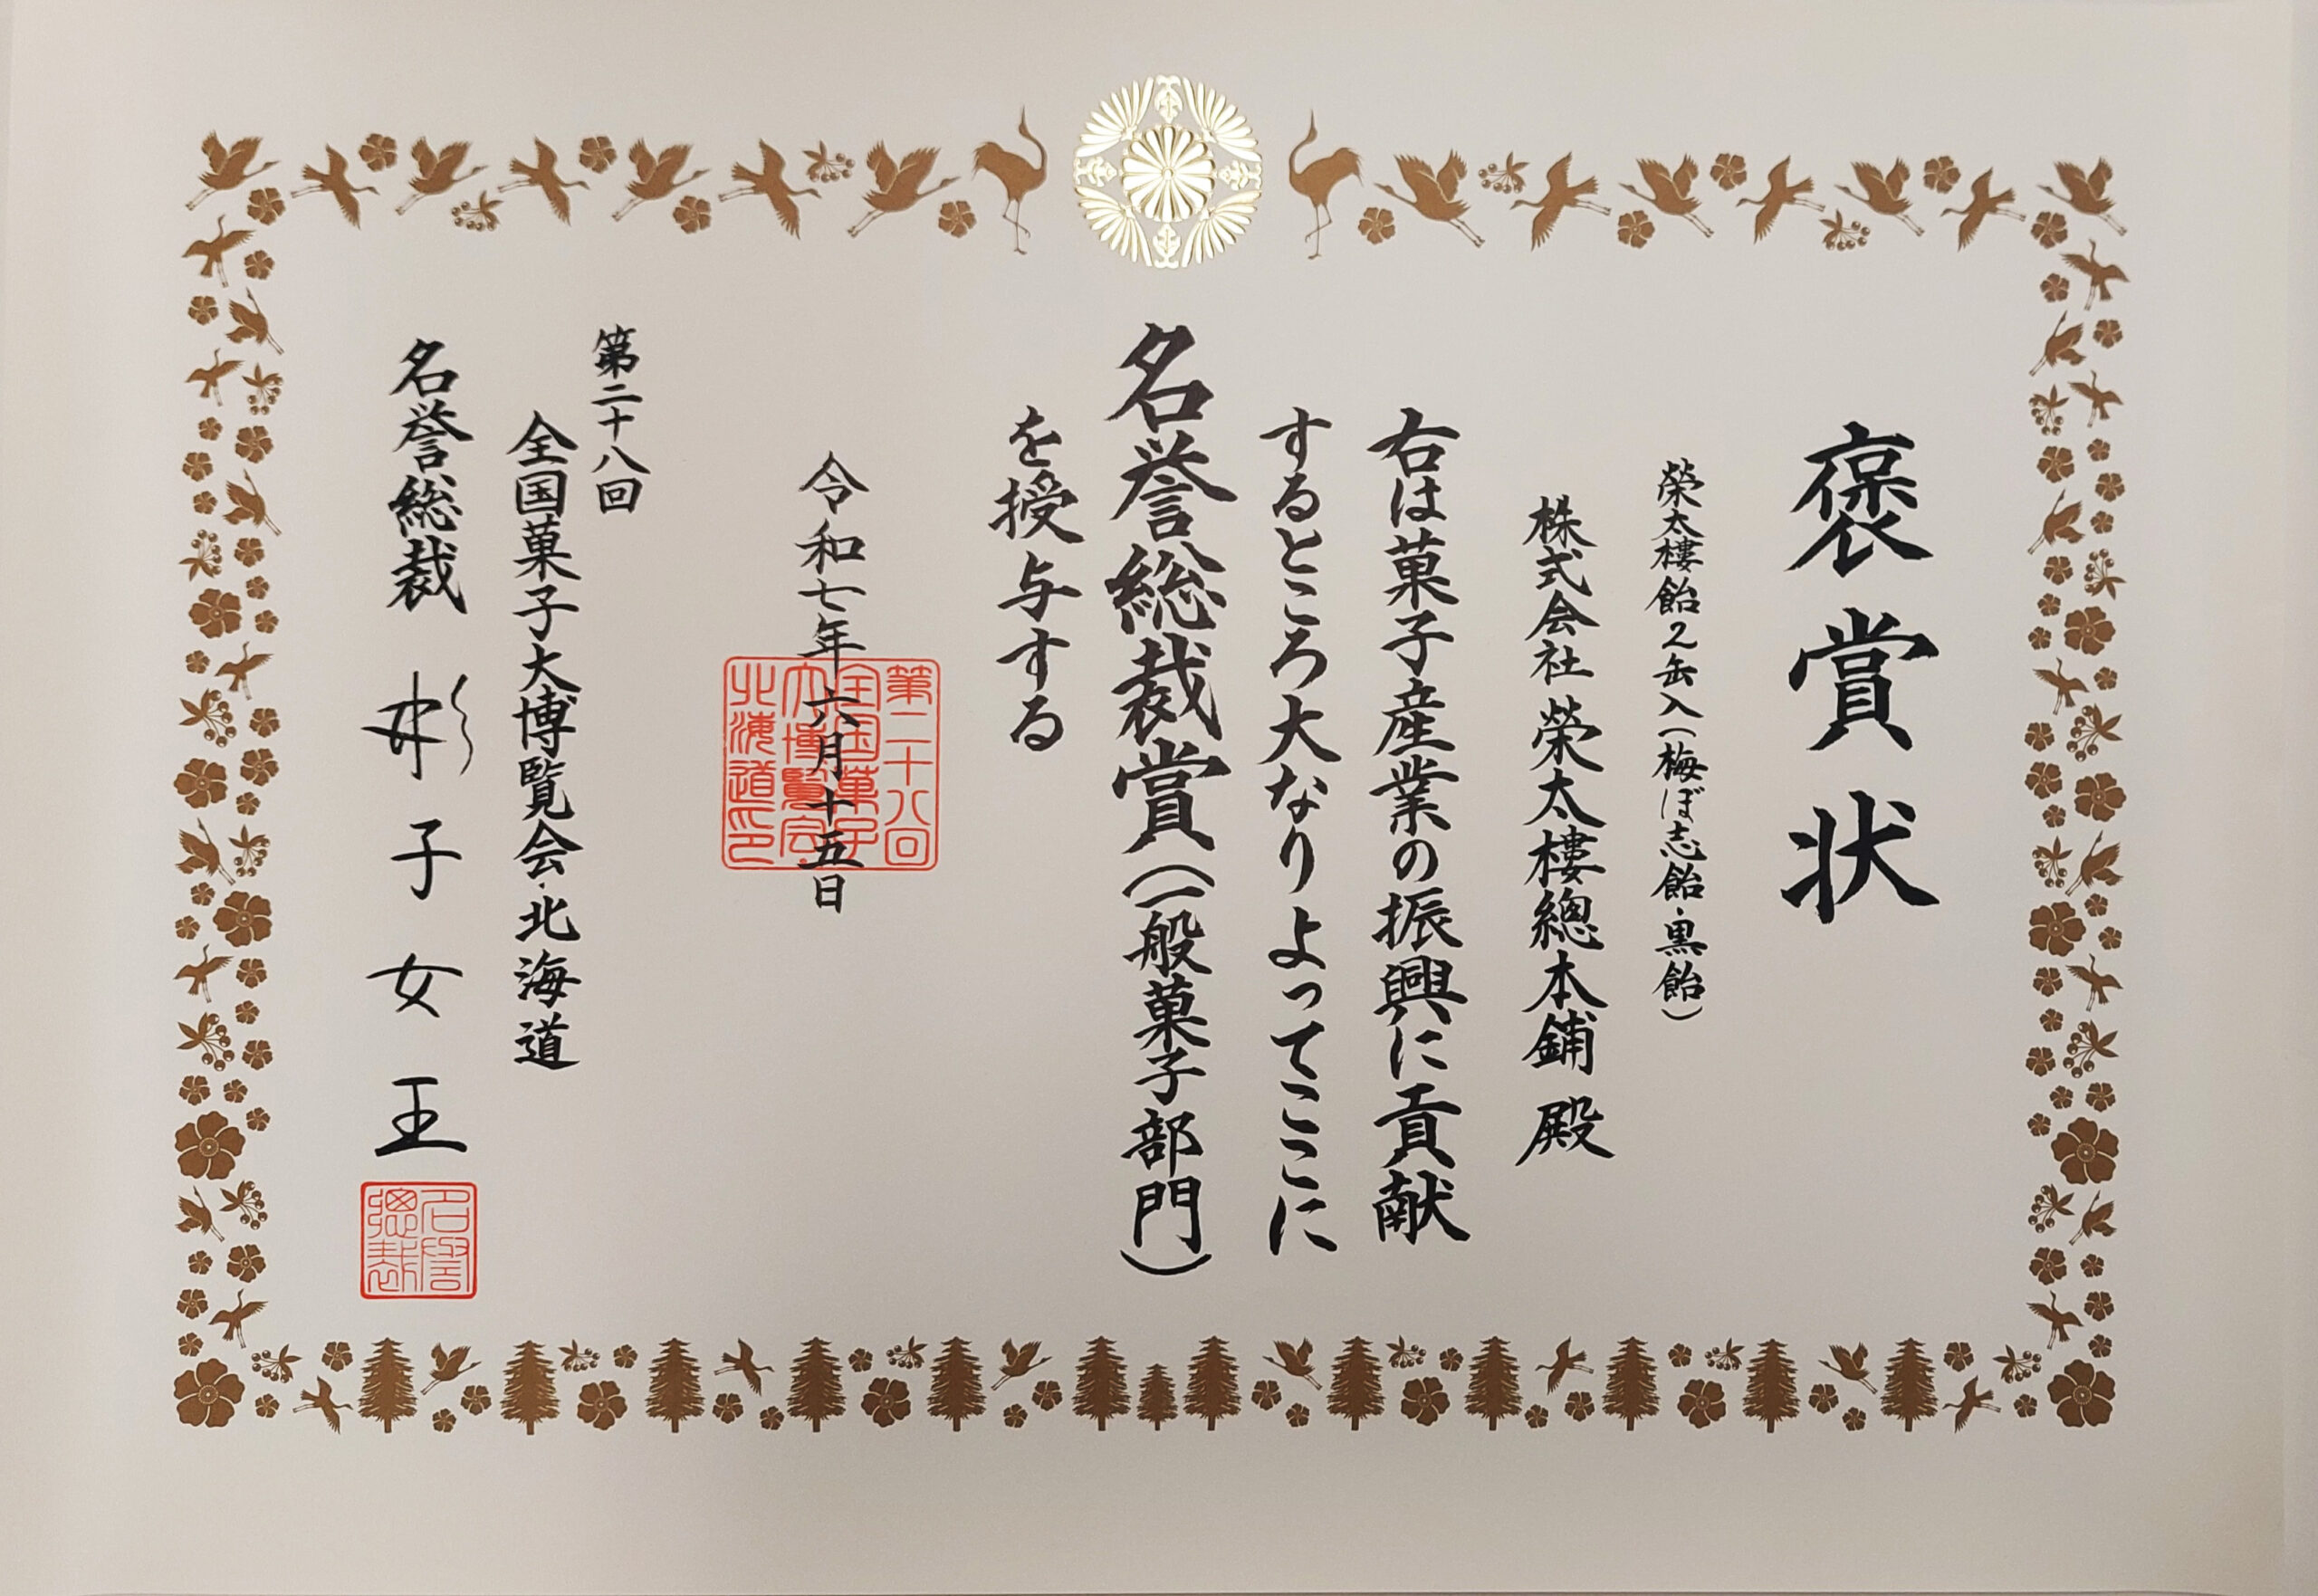 褒賞状
榮太樓飴2缶入(梅ぼ志飴・黒飴)
株式会社 榮太樓總本鋪 殿
右は菓子産業の振興に貢献
するところ大なりよってここに
名誉総裁賞(一般菓子部門)
を授与する
令和七年六月十五日
第二十八回
全国菓子大博覧会
北海道印
第二十八回
全国菓子大博覧会・北海道
名誉総裁 彬子女王
名誉
總裁